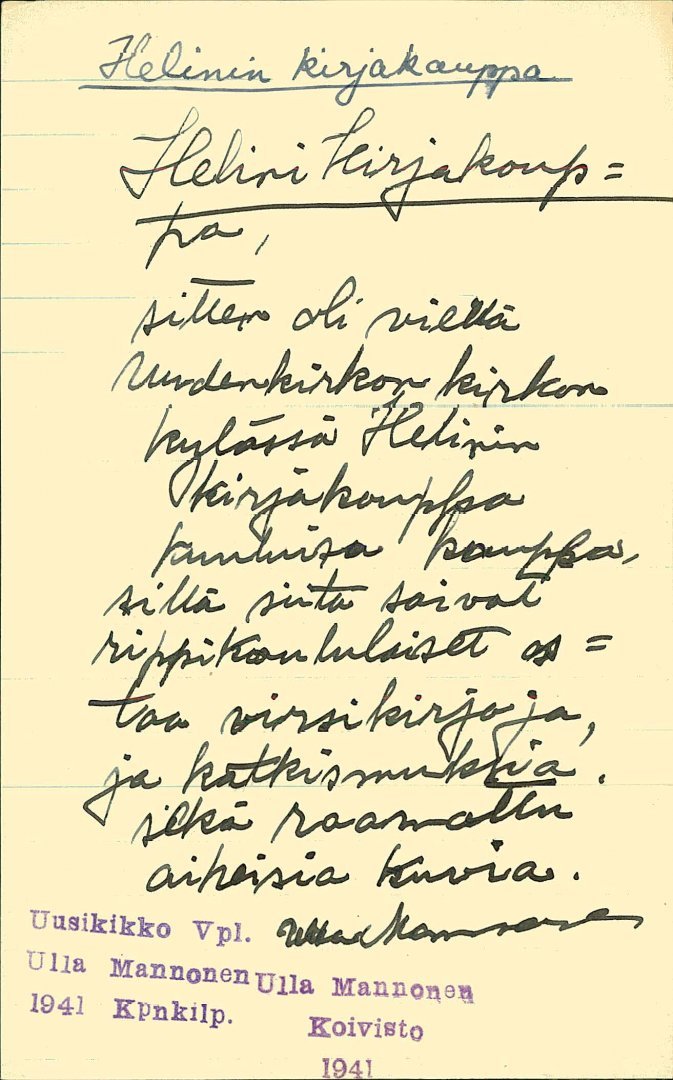 Helinin kirjakauppa
Helini Kirjakoup=
pa,
sitten oli vielä
Uudenkirkon kirkon
kylässä Helinin
kirjakouppa
kuuluisa kauppa,
sillä siitä saivat
rippikoululaiset os=
taa virsikirjoja,
ja katkismuksia.
sekä raamattu
aiheisia kuvia.
Ulla Mannonen
Uusikikko Vpl.
Ulla Mannonen
1941 Kpnkilp.
Ulla Mannonen
Koivisto
1941